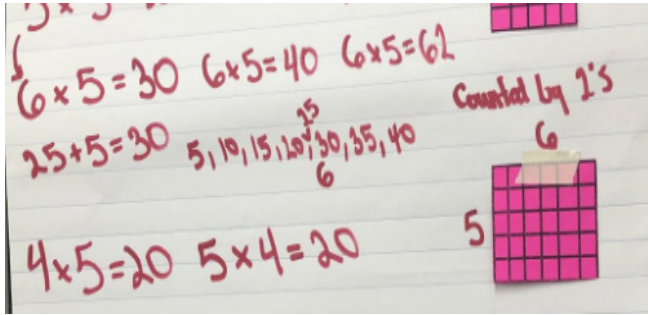 6x5=30 6x5=40 6x5=62
Counted by 1's
25+5=30 5, 10, 15, 20, 30, 35, 40
25
6
6
5
4x5=20 5x4=20